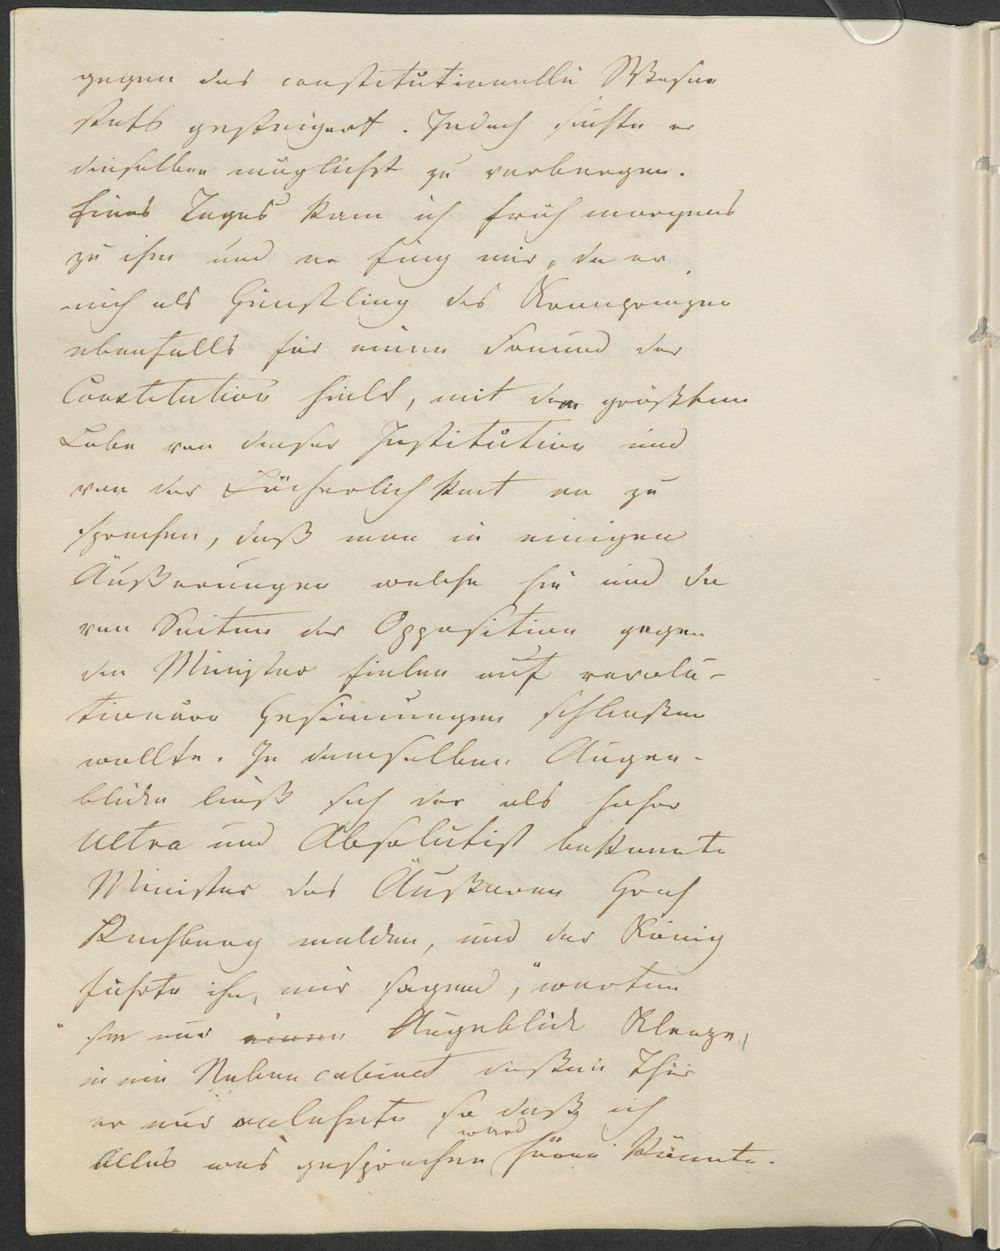 gegen das constitutionelle Wesen
stets gesteigert. Jedoch suchte er
dieselben möglichst zu verbergen.
Eines Tages kam ich früh morgens
zu ihm und er fing mir, da er
mich als Günstling des Kronprinzen
ebenfalls für einen Freund der
Constitution hielt, mit dem größten
Lobe von dieser Institution und
von der Lächerlichkeit an zu
sprechen, daß man in einigen
Äußerungen welche hie und da
von Seiten der Opposition gegen
die Minister fielen auf revolu-
tionäre Gesinnungen schließen
wollte. In demselben Augen-
blicke ließ sich der als hoher
Ultra und Absolutist bekannte
Minister des Äußeren Graf
Rechberg melden, und der König
führte ihn, mir sagend, "warten
"sie nur einen Augeblick Klenze,
in ein Nebencabinet dessen Thür
er nur anlehnte so daß ich
Alles was gesprochen ward hören könnte.